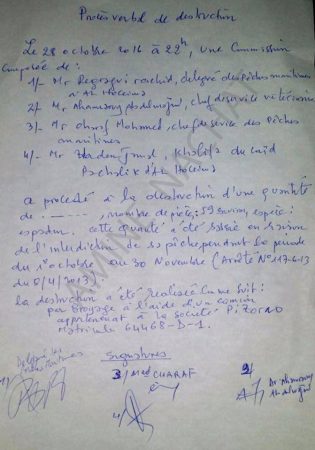 Procès verbal de destruction
Le 28 octobre 2016 à 22h, une Commission
Composée de :
1/- Mr Regragui rachid, delegué des pêches maritimes
d'Al Hoceima
2/- Mr Ahamrouy Abdelmajid, chef de service vétérinaire
3/- Mr Mohamed, chef de service des Pêches
maritimes
4/- Mr Khalifa du caïd
Pachalik d'Al Hoceima
a procédé à la destruction d'une quantité
de ------, nombre de pièces : 59 environ, espèce :
espadon. cette quantité a été saisie en raison
de l'interdiction de sa pêche pendant la période
du 1er octobre au 30 Novembre (Arrêté N° 1176-13
du 8/4/2013).
la destruction a été réalisée comme suit :
par broyage à l'aide d'un camion
appartenant à la société Pizorno
matricule 64468-D-1.
Signatures
Délégué des
Pêches Maritimes
1/
3/ Med CHARAF
2/
Dr Ahamrouy
Abdelmajid
4/